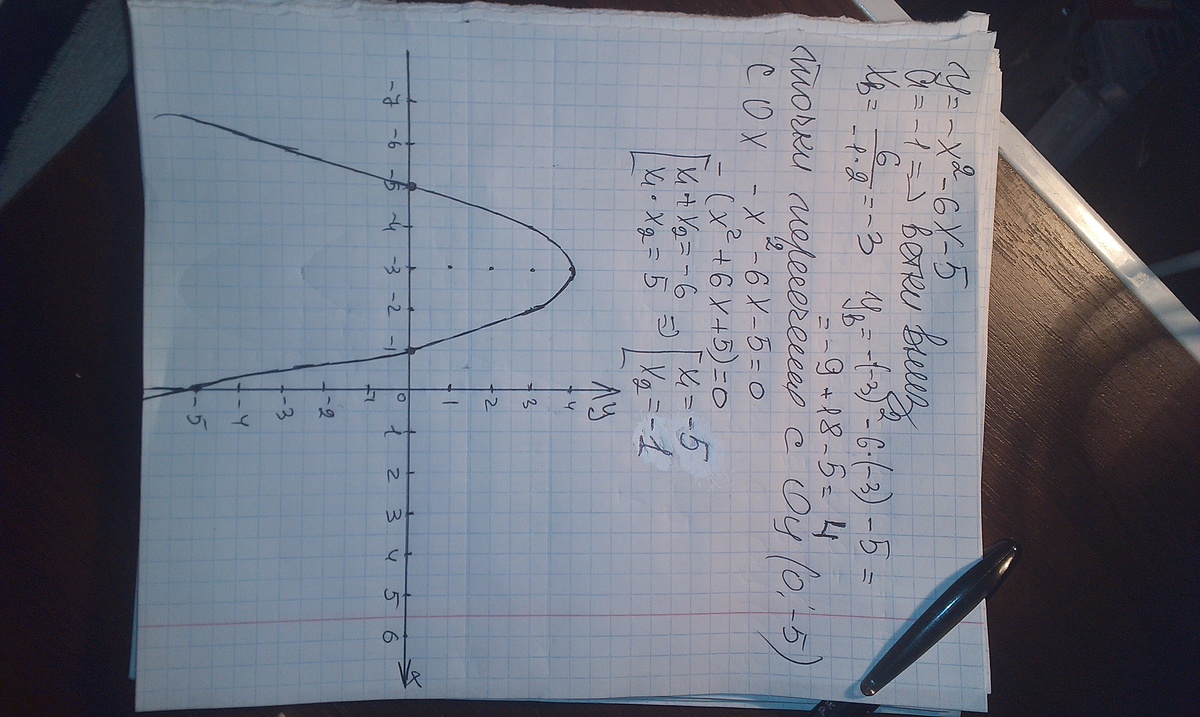 y = -x² - 6x - 5
a = -1 => ветки вниз
x_в = 6/(-1·2) = -3 y_в = -(-3)² - 6·(-3) - 5 =
= -9 + 18 - 5 = 4
точки пересечения с Oy (0; -5)
с OX -x² - 6x - 5 = 0
-(x² + 6x + 5) = 0
[x₁ + x₂ = -6
[x₁ · x₂ = 5 => [x₁ = -5
[x₂ = -1
y
4
3
2
1
-7 -6 -5 -4 -3 -2 -1 0 1 2 3 4 5 6 x
-1
-2
-3
-4
-5